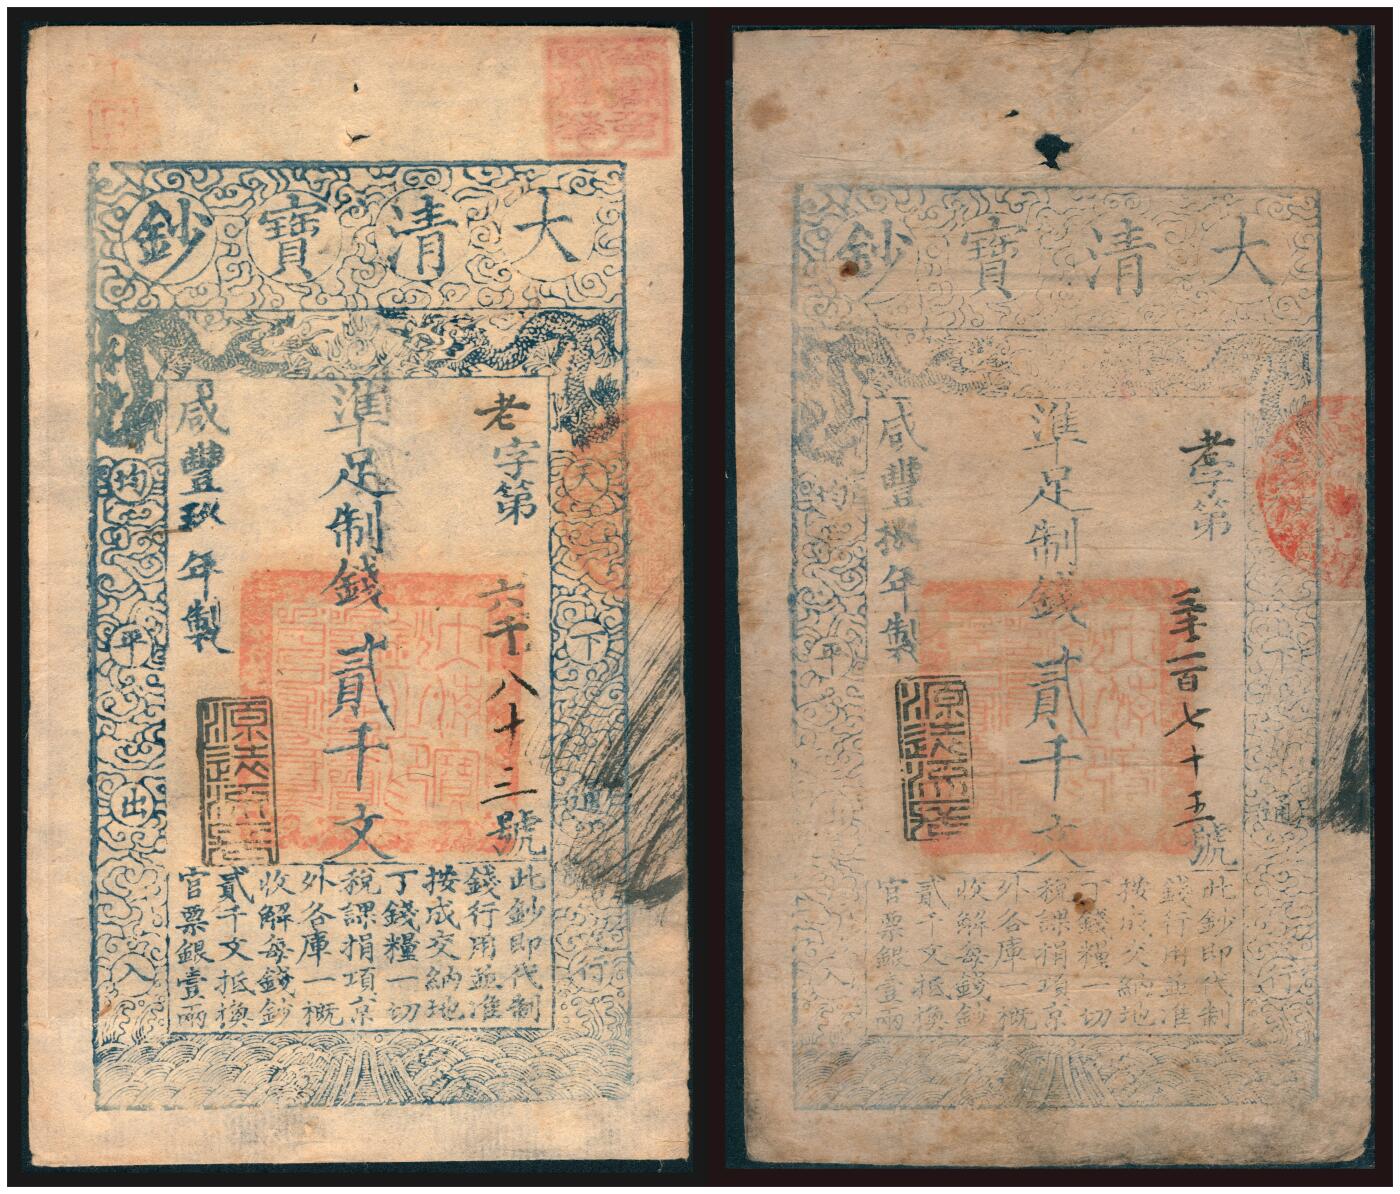 大清寶鈔
老字第六千八十三號
準足制錢貳千文
咸豐玖年製
天下通行
均平出入
此鈔即代制
錢行用並准
按成交納地
丁錢糧一切
稅課捐項京
外各庫一概
收解每錢鈔
貳千文抵換
官票銀壹兩
大清寶鈔
老字第
一百七十五號
準足制錢貳千文
咸豐捌年製
下通行
均平
此鈔即代制
錢行用並准
按成交納地
丁錢糧一切
稅課捐項京
外各庫一概
收解每錢鈔
貳千文抵換
官票銀壹兩